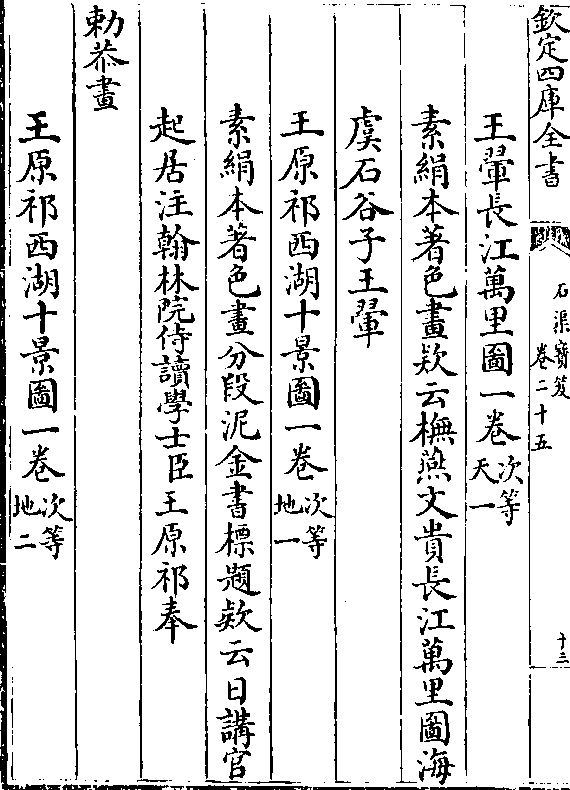 欽定四庫全書
石渠寶笈
卷二十五
十三
王翬長江萬里圖一卷次等天一
素絹本著色畫欵云橅燕文貴長江萬里圖海
虞石谷子王翬
王原祁西湖十景圖一卷次等地一
素絹本著色畫分段泥金書標題欵云日講官
起居注翰林院侍讀學士臣王原祁奉
勅恭畫
王原祁西湖十景圖一卷次等地二